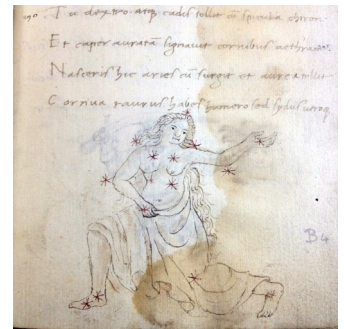 Tu dextro atq cadis tollit cū spicula chiron
Et caper auratā signavit cornibus aethra
Nasceris hic aries cū surgit et aurea tollit
Cornua taurus habes humero sed sydus utroq
B4